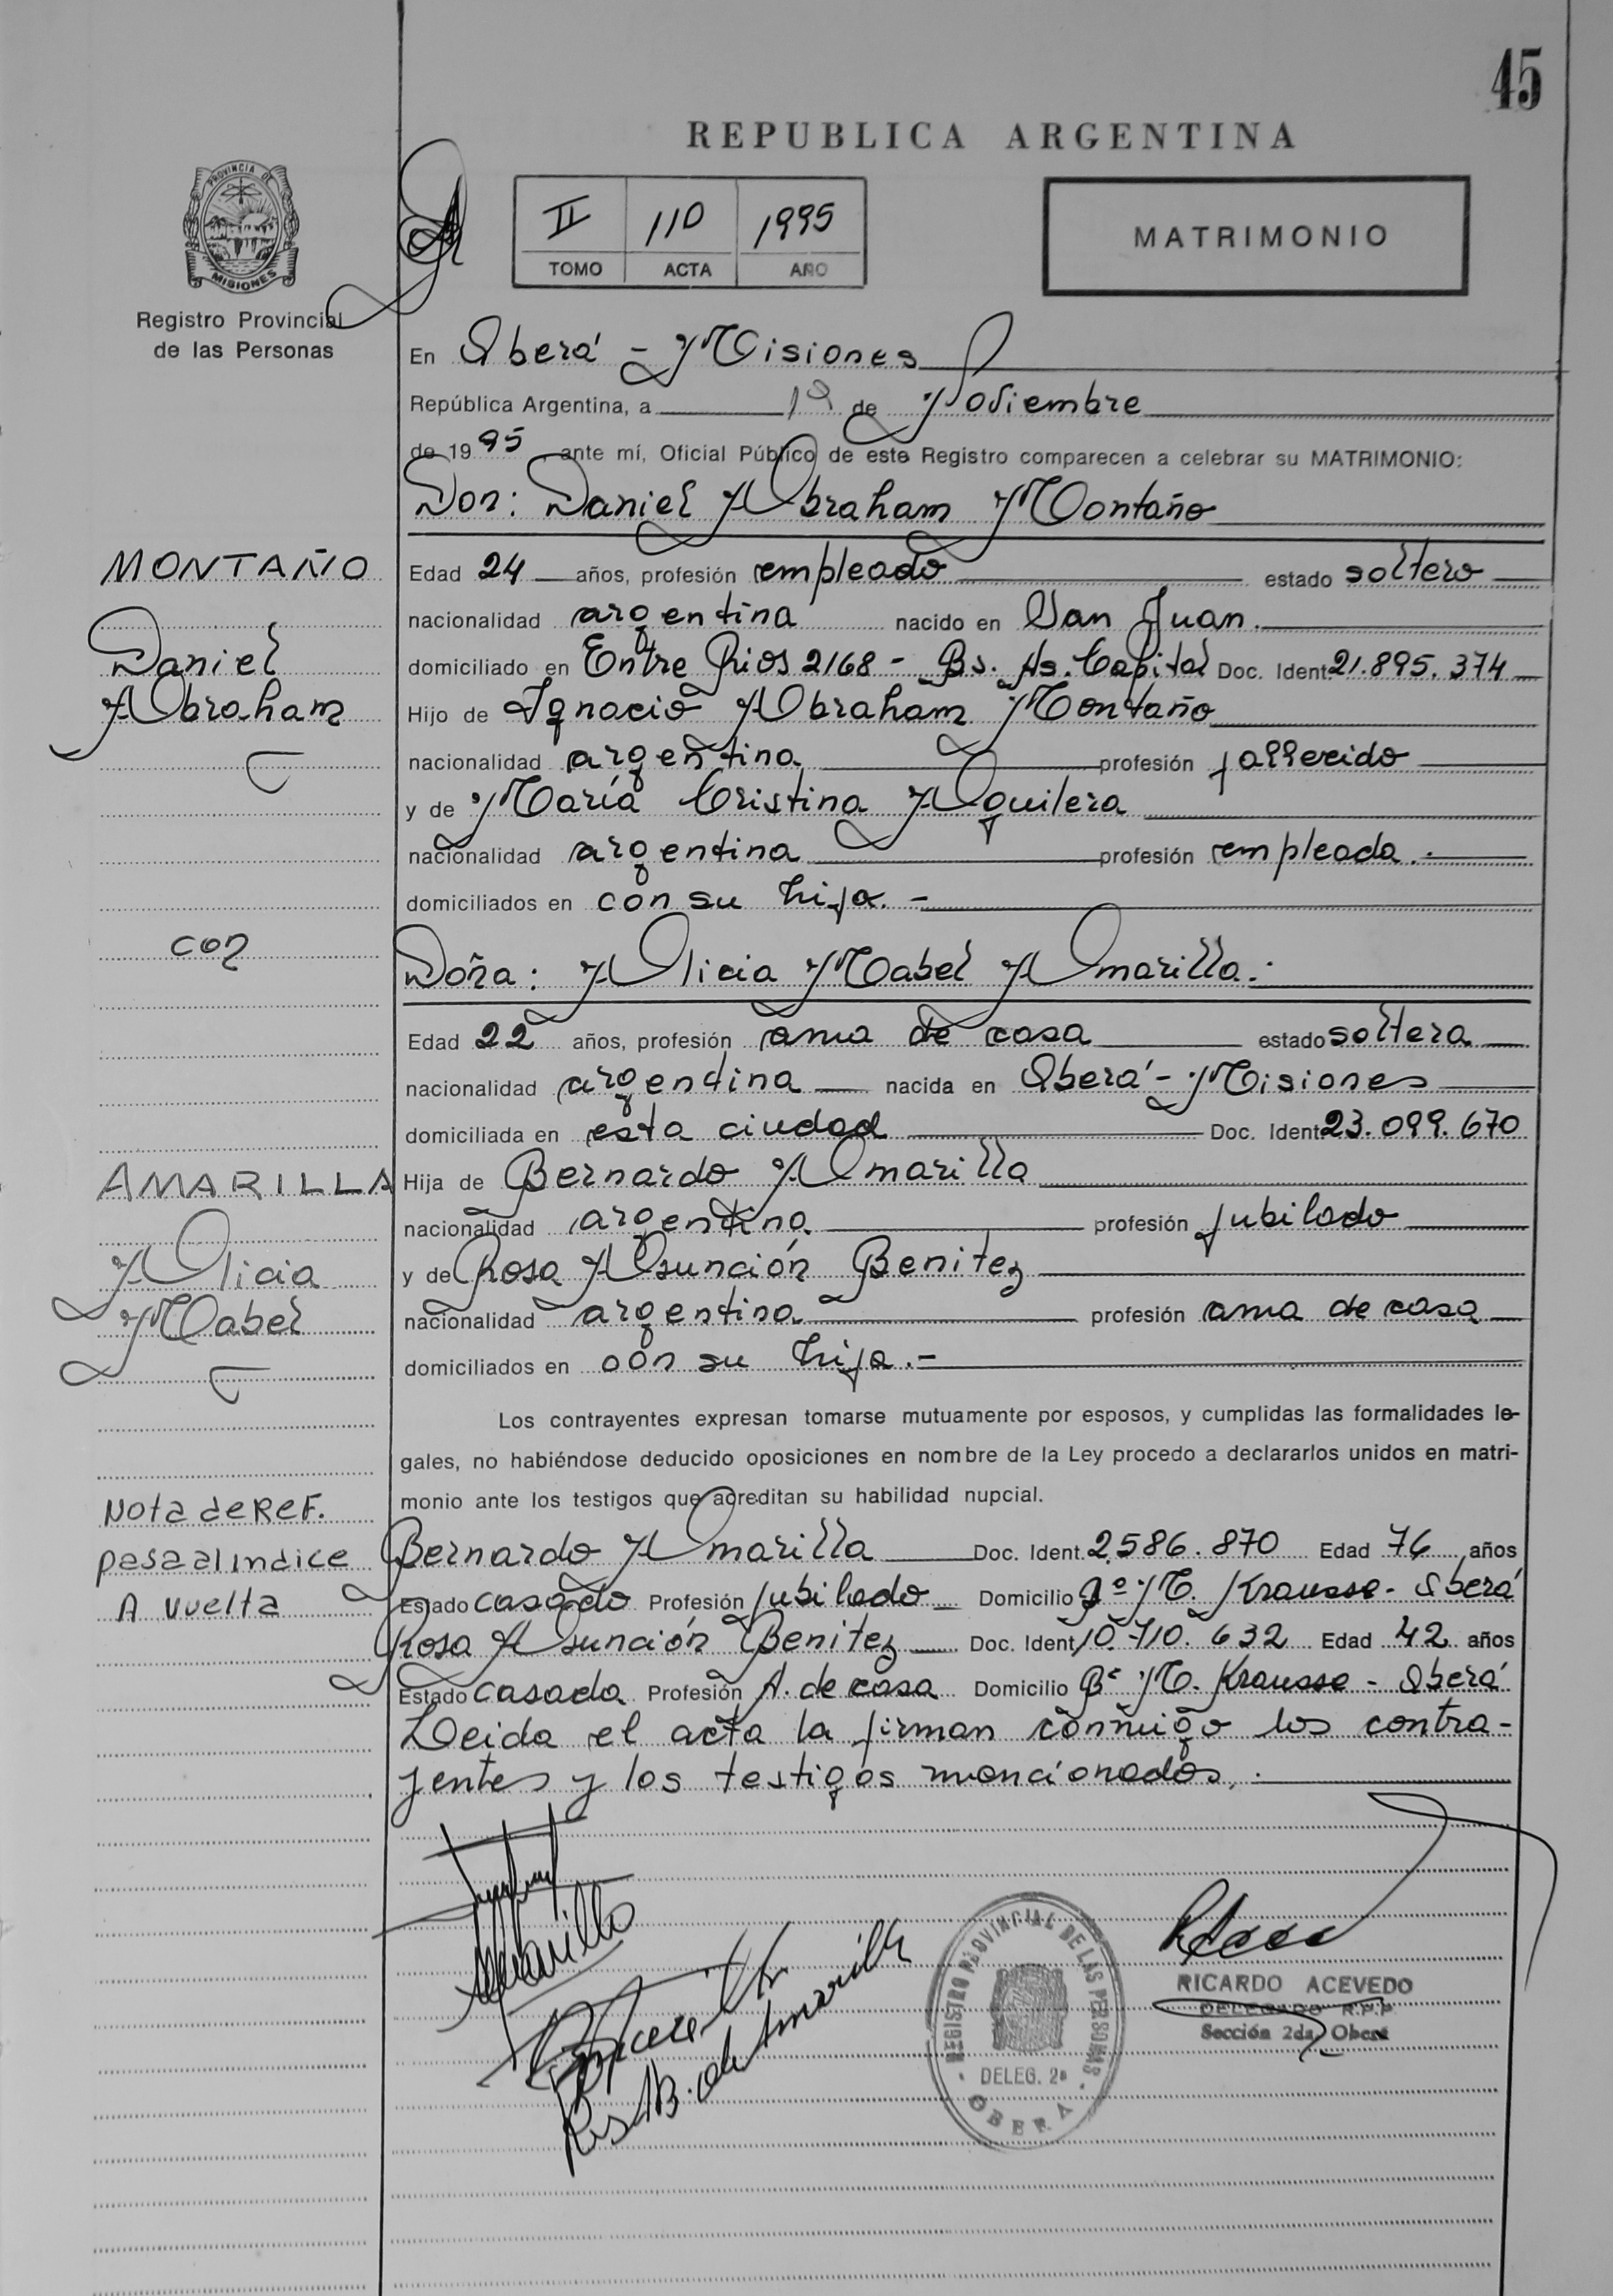 45
REPUBLICA ARGENTINA
PROVINCIA DE
MISIONES
Registro Provincial
de las Personas
II 110 1995
TOMO ACTA AÑO
MATRIMONIO
En Oberá - Misiones
República Argentina, a 1º de Noviembre
de 1995, ante mí, Oficial Público de este Registro comparecen a celebrar su MATRIMONIO:
Don: Daniel Abraham Montaño
MONTAÑO
Daniel
Abraham
Edad 24 años, profesión empleado estado soltero
nacionalidad argentina nacido en San Juan.
domiciliado en Entre Rios 2168 - Bs. As. Capital Doc. Ident. 21.895.374
Hijo de Ignacio Abraham Montaño
nacionalidad argentina profesión fallecido
y de María Cristina Aguilera
nacionalidad argentina profesión empleada.-
domiciliados en con su hija.-
con
Doña: Alicia Mabel Amarilla.-
Edad 22 años, profesión ama de casa estado soltera
nacionalidad argentina nacida en Oberá - Misiones
domiciliada en esta ciudad Doc. Ident. 23.099.670
AMARILLA
Alicia
Mabel
Hija de Bernardo Amarilla
nacionalidad argentina profesión jubilado
y de Rosa Asunción Benitez
nacionalidad argentina profesión ama de casa
domiciliados en con su hija.-
Los contrayentes expresan tomarse mutuamente por esposos, y cumplidas las formalidades le-
gales, no habiéndose deducido oposiciones en nombre de la Ley procedo a declararlos unidos en matri-
monio ante los testigos que acreditan su habilidad nupcial.
Nota de REF.
pasa al indice
A vuelta
Bernardo Amarilla Doc. Ident. 2586.870 Edad 76 años
Estado casado Profesión jubilado Domicilio Bº M. Krausse - Oberá
Rosa Asunción Benitez Doc. Ident. 10.710.632 Edad 42 años
Estado casada Profesión A. de casa Domicilio Bº M. Krausse - Oberá
Leida el acta la firman conmigo los contra-
yentes y los testigos mencionados.
Amarilla
B. de Amarilla
REGISTRO PROVINCIAL DE LAS PERSONAS
DELEG. 2ª
OBERA
RICARDO ACEVEDO
DELEGADO R.P.P.
Sección 2da. Oberá